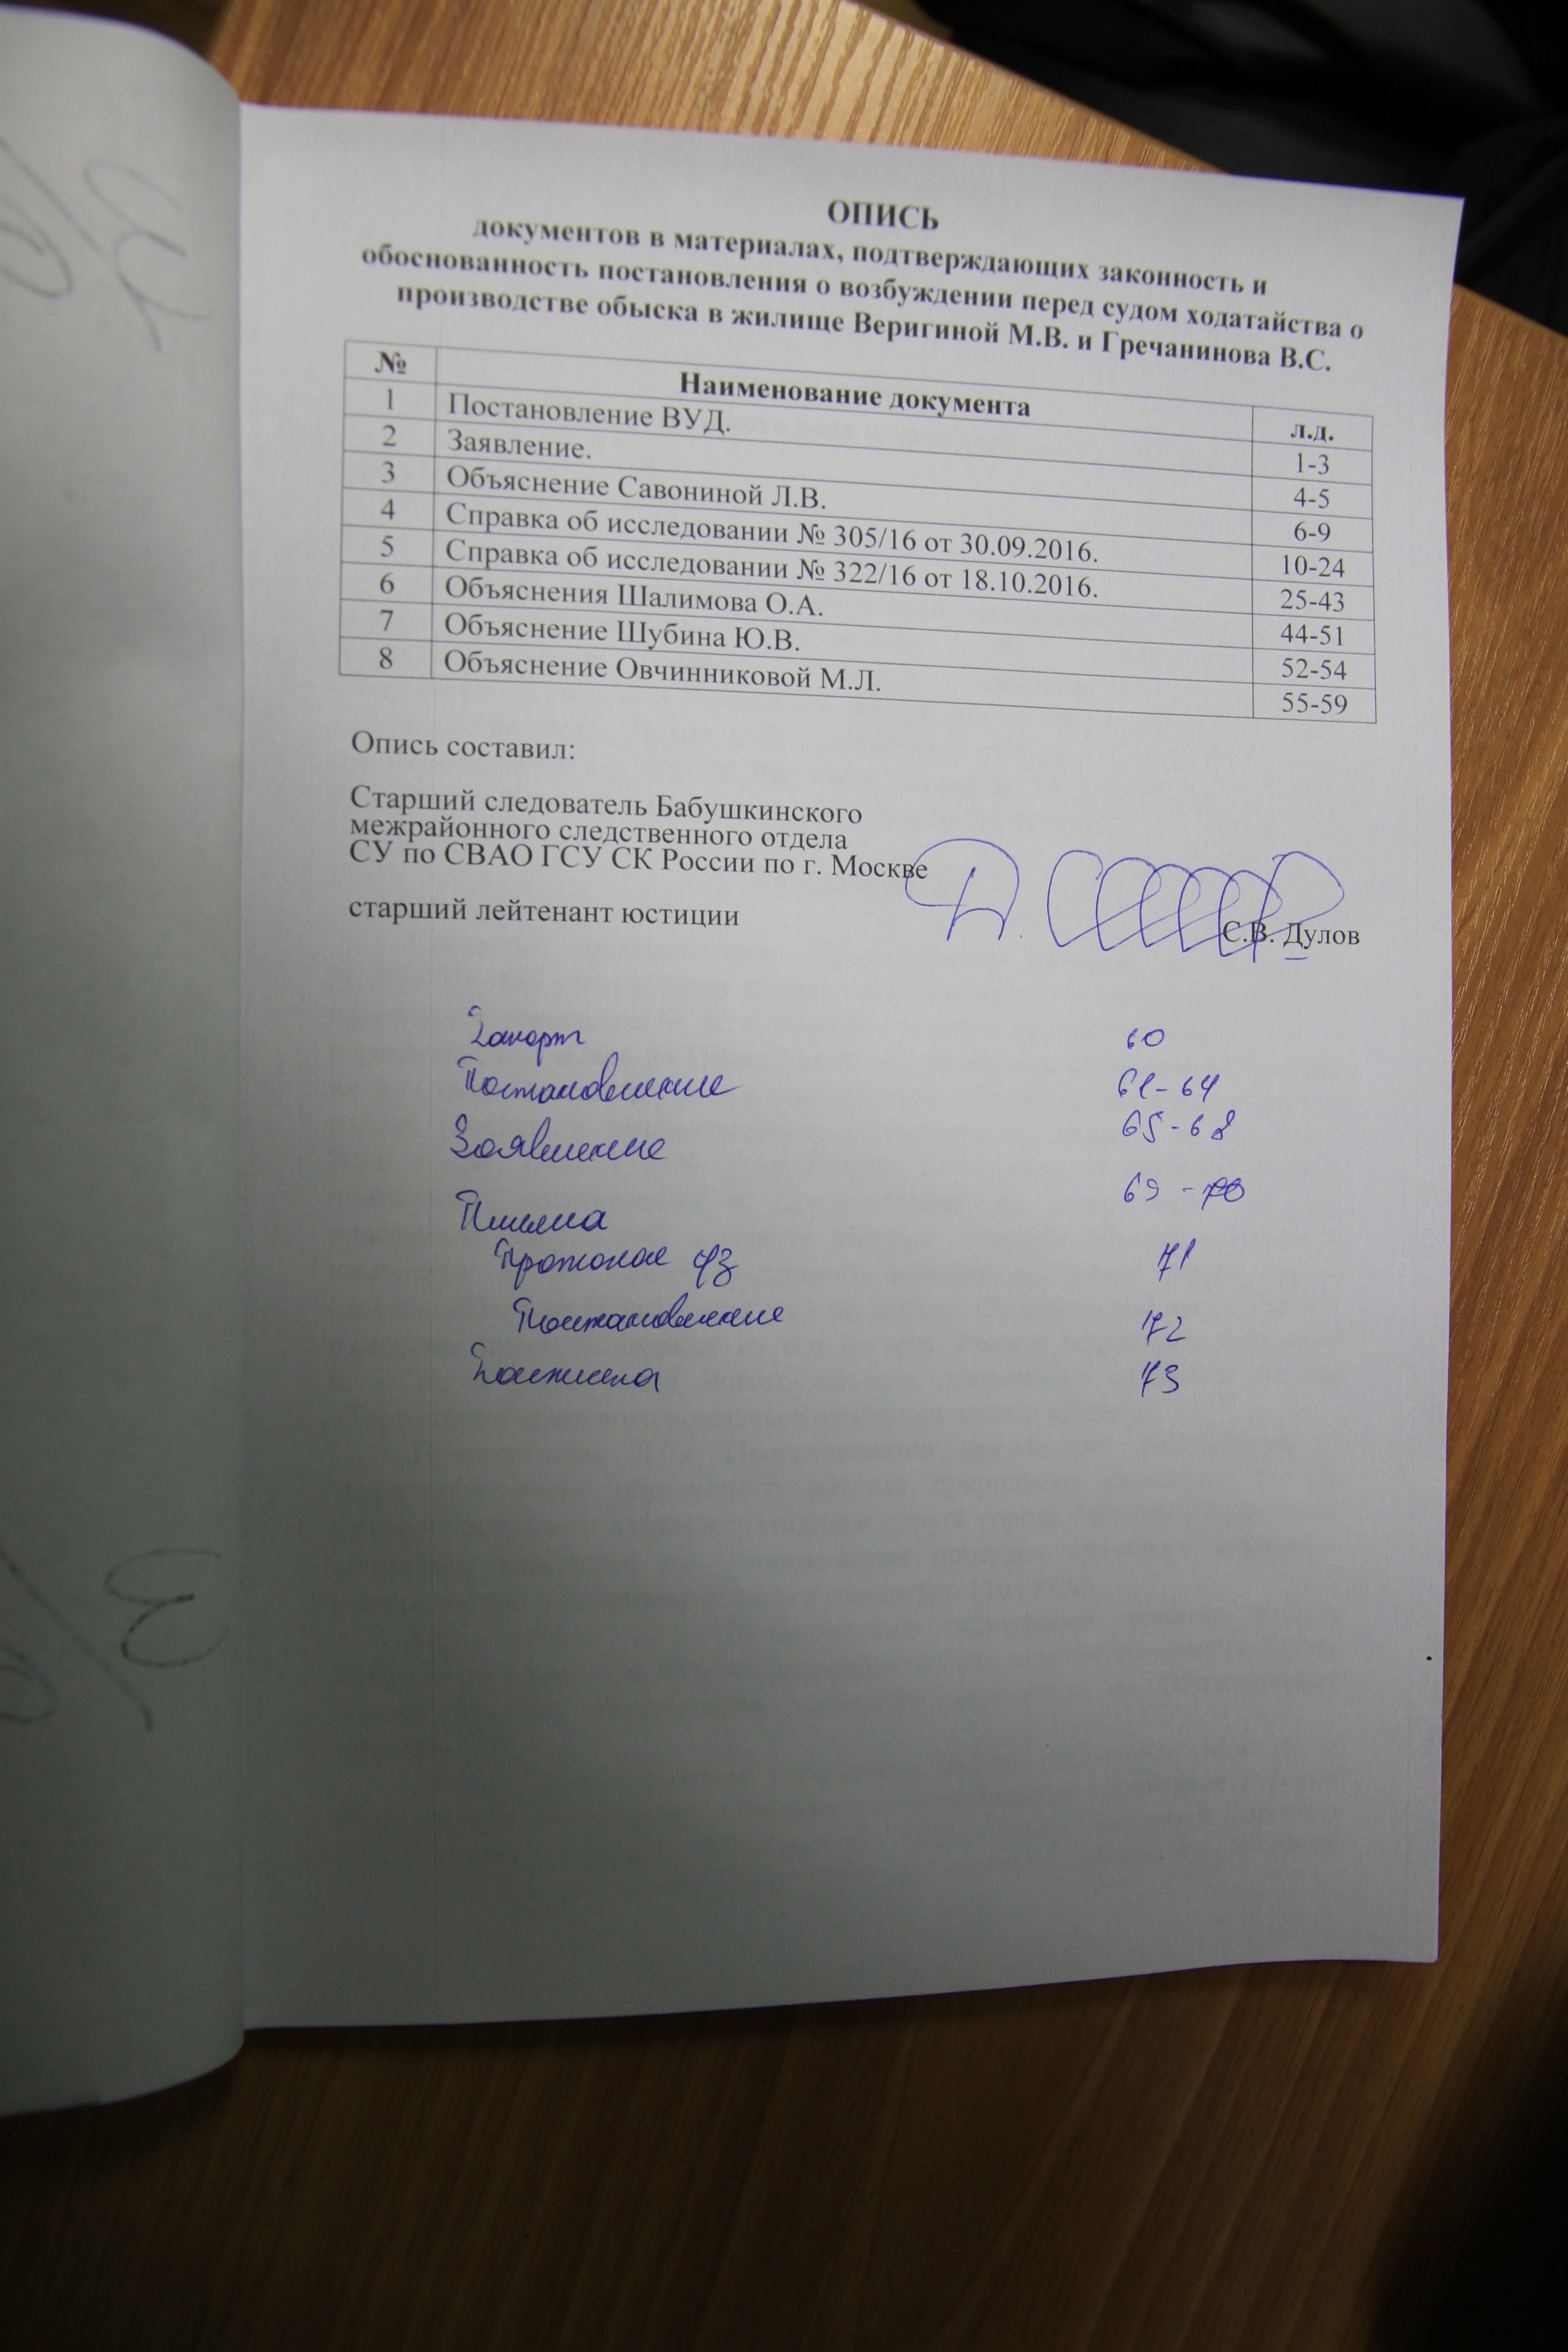 ОПИСЬ
документов в материалах, подтверждающих законность и
обоснованность постановления о возбуждении перед судом ходатайства о
производстве обыска в жилище Веригиной М.В. и Гречанинова В.С.
№ Наименование документа л.д.
1 Постановление ВУД. 1-3
2 Заявление. 4-5
3 Объяснение Савониной Л.В. 6-9
4 Справка об исследовании № 305/16 от 30.09.2016. 10-24
5 Справка об исследовании № 322/16 от 18.10.2016. 25-43
6 Объяснения Шалимова О.А. 44-51
7 Объяснение Шубина Ю.В. 52-54
8 Объяснение Овчинниковой М.Л. 55-59
Опись составил:
Старший следователь Бабушкинского
межрайонного следственного отдела
СУ по СВАО ГСУ СК России по г. Москве
старший лейтенант юстиции С.В. Дулов
Рапорт 60
Постановление 61-64
Заявление 65-68
69-70
Протокол 71
Постановление 72
Расписка 73